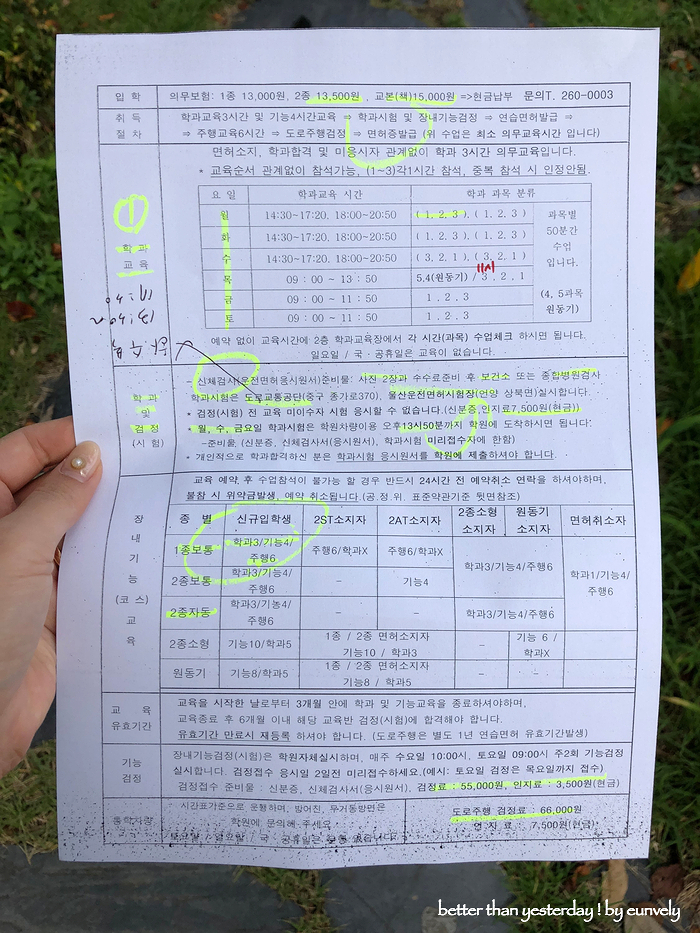 입 학 의무보험: 1종 13,000원, 2종 13,500원 , 교본(책)15,000원 =>현금납부 문의T. 260-0003
취 득
절 차
학과교육3시간 및 기능4시간교육 ⇒ 학과시험 및 장내기능검정 ⇒ 연습면허발급 ⇒
⇒ 주행교육6시간 ⇒ 도로주행검정 ⇒ 면허증발급 (위 수업은 최소 의무교육시간 입니다)
① 학 과
교 육
면허소지, 학과합격 및 미응시자 관계없이 학과 3시간 의무교육입니다.
* 교육순서 관계없이 참석가능, (1~3)각1시간 참석, 중복 참석 시 인정안됨.
요 일 학과교육 시간 학과 과목 분류
월 14:30~17:20, 18:00~20:50 ( 1, 2, 3 ), ( 1, 2, 3 )
화 14:30~17:20, 18:00~20:50 ( 1, 2, 3 ), ( 1, 2, 3 )
수 14:30~17:20, 18:00~20:50 ( 3, 2, 1 ), ( 3, 2, 1 )
11시
목 09 : 00 ~ 13 : 50 5,4(원동기) / 3, 2, 1
금 09 : 00 ~ 11 : 50 1, 2, 3
토 09 : 00 ~ 11 : 50 1, 2, 3
과목별
50분간
수업
입니다.
(4, 5과목
원동기)
예약 없이 교육시간에 2층 학과교육장에서 각 시간(과목) 수업체크 하시면 됩니다.
일요일 / 국 · 공휴일은 교육이 없습니다.
13:40
학 과
및
검 정
(시 험)
- 신체검사(운전면허응시원서)준비물: 사진 2장과 수수료준비 후 보건소 또는 종합병원검사
학과시험은 도로교통공단(중구 종가로370), 울산운전면허시험장(언양 상북면)실시합니다.
* 검정(시험) 전 교육 미이수자 시험 응시할 수 없습니다.(신분증,인지료7,500원(현금))
월, 수, 금요일 학과시험은 학원차량이용 오후13시50분까지 학원에 도착하시면 됩니다.
-준비물, (신분증, 신체검사서(응시원서), 학과시험 미리접수자에 한함)
* 개인적으로 학과합격하신 분은 학과시험 응시원서를 학원에 제출하셔야 합니다.
교육 예약, 후 수업참석이 불가능 할 경우 반드시 24시간 전 예약취소 연락을 하셔야하며,
불참 시 위약금발생, 예약 취소됩니다.(공.정.위. 표준약관기준 뒷면참조)
장
내
기
능
(코 스)
교
육
종 별 신규입학생 2ST소지자 2AT소지자 2종소형 소지자 원동기 소지자 면허취소자
1종보통 학과3/기능4/ 주행6 주행6/학과X 주행6/학과X
2종보통 학과3/기능4/ 주행6 - 기능4
학과3/기능4/주행6
2종자동 학과3/기능4/ 주행6 - - 학과3/기능4/주행6
학과1/기능4/ 주행6
2종소형 기능10/학과5 1종 / 2종 면허소지자 기능10 / 학과3 - 기능 6 / 학과X
원동기 기능8/학과5 1종 / 2종 면허소지자 기능8 / 학과5 - -
교 육
유효기간
교육을 시작한 날로부터 3개월 안에 학과 및 기능교육을 종료하셔야하며,
교육종료 후 6개월 이내 해당 교육반 검정(시험)에 합격해야 합니다.
유효기간 만료시 재등록 하셔야 합니다. (도로주행은 별도 1년 연습면허 유효기간발생)
기능
검정
장내기능검정(시험)은 학원자체실시하며, 매주 수요일 10:00시, 토요일 09:00시 주2회 기능검정
실시합니다. 검정접수 응시일 2일전 미리접수하세요.(예시: 토요일 검정은 목요일까지 접수)
검정접수 준비물 : 신분증, 신체검사서(응시원서), 검정료 : 55,000원, 인지료 : 3,500원(현금)
통학차량
시간표기준으로 운행하며, 방어진, 무거동방면은
학원에 문의해 주세요
토요일 / 일요일 / 국 · 공휴일은 운행 없습니다.
도로주행 검정료 : 66,000원
인 지 료 : 7,500원(현금)
better than yesterday ! by eunvely